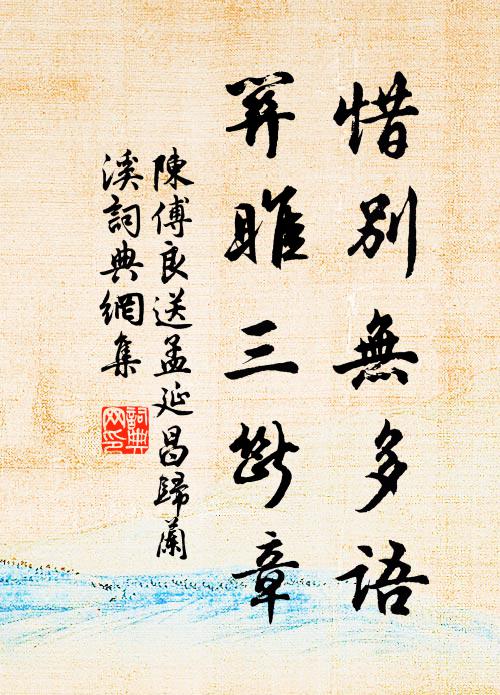 惜別無多語
關雎三斷章
陳傅良送孟延昌歸蘭
溪詞典網集
詞典
网印